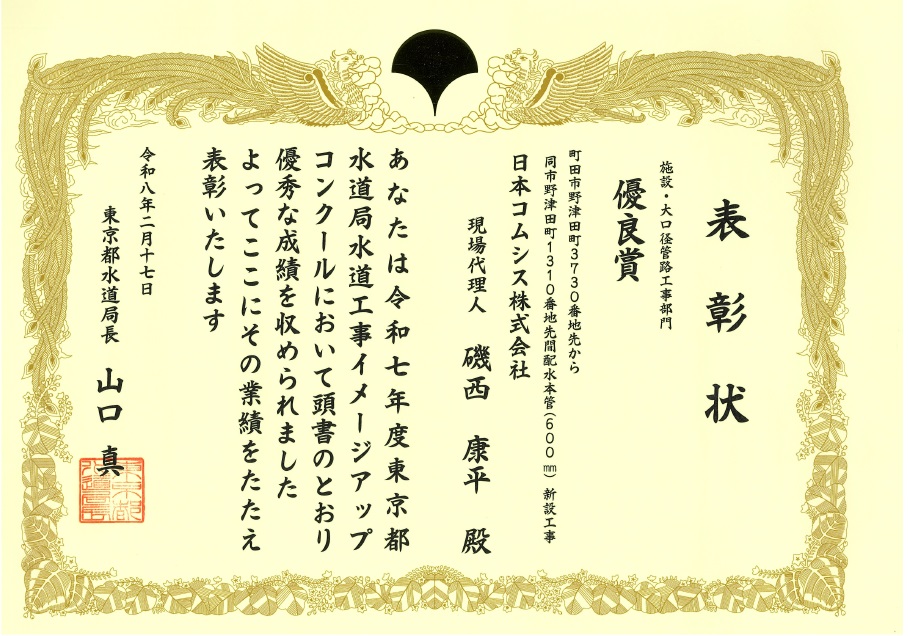 表彰状
施設・大口径管路工事部門
優良賞
町田市野津田町3730番地先から
同市野津田町1310番地先間配水本管(600㎜)新設工事
日本コムシス株式会社
現場代理人 磯西 康平 殿
あなたは令和七年度東京都
水道局水道工事イメージアップ
コンクールにおいて頭書のとおり
優秀な成績を収められました
よってここにその業績をたたえ
表彰いたします
令和八年二月十七日
東京都水道局長 山口 真